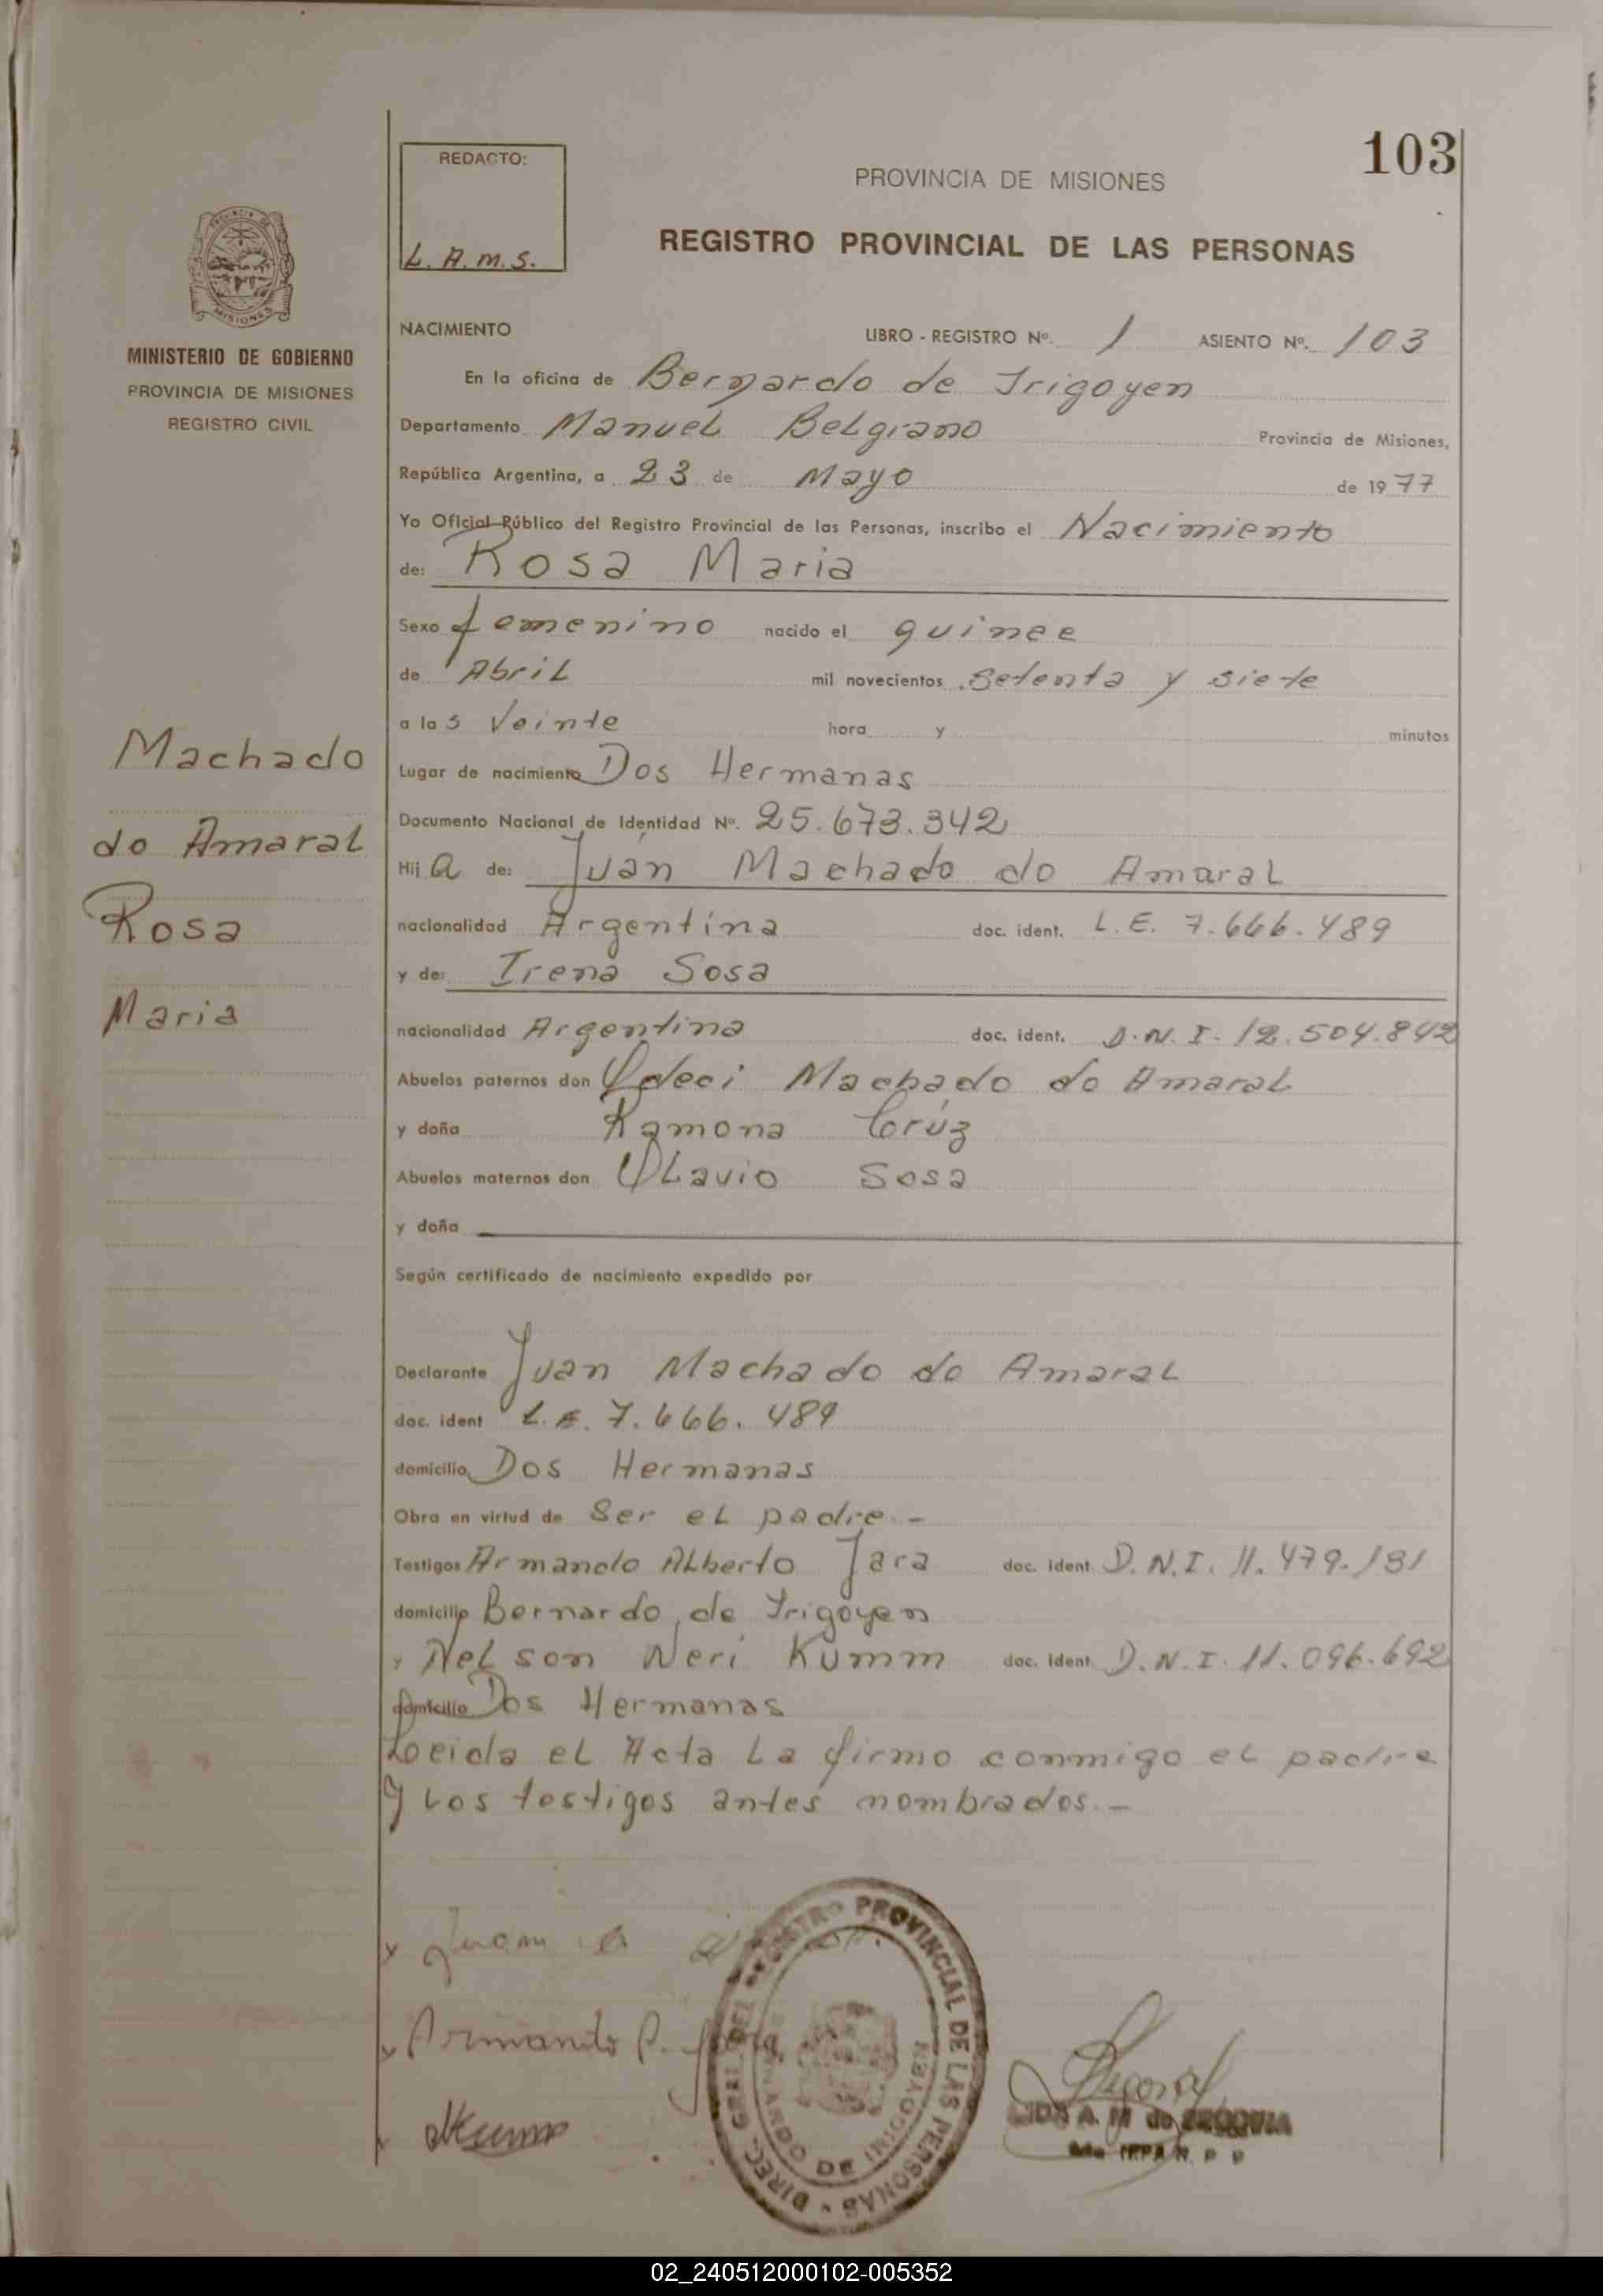 103
REDACTO:
L. A. M. S.
PROVINCIA DE MISIONES
REGISTRO PROVINCIAL DE LAS PERSONAS
MINISTERIO DE GOBIERNO
PROVINCIA DE MISIONES
REGISTRO CIVIL
Machado
do Amaral
Rosa
Maria
NACIMIENTO LIBRO - REGISTRO Nº. 1 ASIENTO Nº. 103
En la oficina de Bernardo de Irigoyen
Departamento Manuel Belgrano Provincia de Misiones,
República Argentina, a 23 de Mayo de 1977
Yo Oficial Público del Registro Provincial de las Personas, inscribo el Nacimiento
de: Rosa Maria
Sexo femenino nacido el quince
de Abril mil novecientos setenta y siete
a las Veinte hora y minutos
Lugar de nacimiento Dos Hermanas
Documento Nacional de Identidad Nº. 25.673.342
Hija de: Juan Machado do Amaral
nacionalidad Argentina doc. ident. L.E. 7.666.489
y de: Irena Sosa
nacionalidad Argentina doc. ident. D.N.I. 12.504.842
Abuelos paternos don Machado do Amaral
y doña Ramona Crúz
Abuelos maternos don Olavio Sosa
y doña
Según certificado de nacimiento expedido por
Declarante Juan Machado do Amaral
doc. ident L.E. 7.666.489
domicilio Dos Hermanas
Obra en virtud de Ser el padre.-
Testigos Armando Alberto Jara doc. ident D.N.I. 11.479.131
domicilio Bernardo de Irigoyen
y Nelson Neri Kumm doc. ident D.N.I. 11.096.692
domicilio Dos Hermanas
Leeida el Acta la firmo conmigo el padre
y los testigos antes nombrados.-
Juan
Armando A. Jara
DIREC. GRAL. DEL REGISTRO PROVINCIAL DE LAS PERSONAS
BERNARDO DE IRIGOYEN
02_240512000102-005352